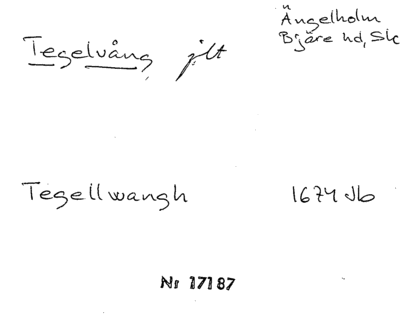 Tegelvång jlt
Ängelholm
Bjäre hd, Sk
Tegellwangh
1674 Jb
Nr 17187